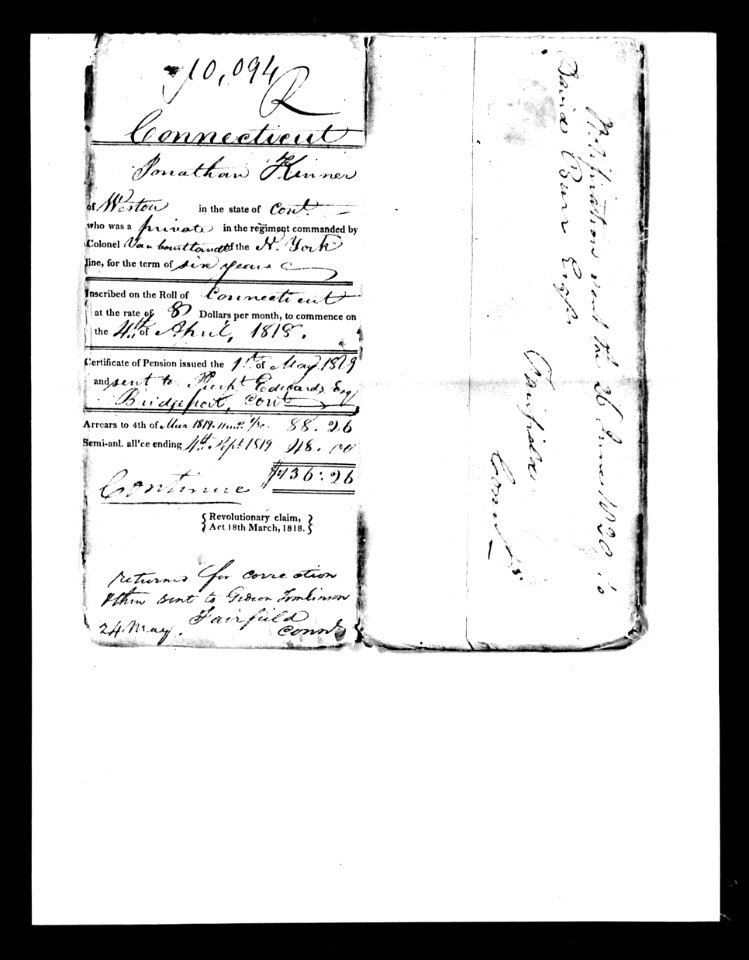 10,094
R
Connecticut
Jonathan Kinner
of Weston in the state of Cont.
who was a private in the regiment commanded by
Colonel Van Courtlandt of the N. York
line, for the term of six years
Inscribed on the Roll of Connecticut
at the rate of 8 Dollars per month, to commence on
the 4th of April, 1818.
Certificate of Pension issued the 1st of May 1819
and sent to Edwards Esq
Bridgeport, Cont
Arrears to 4th of Mar 1819 88.26
Semi-ant. all'ce ending 4th Sept 1819 48.00
$136.26
Continue
{ Revolutionary claim, }
{ Act 18th March, 1818. }
returned for correction
& then sent to Gideon Tomlinson
Fairfield
24 May. Connt
Notification sent the 26 June 1820, to
David Burr Esqr
Fairfield
Connt